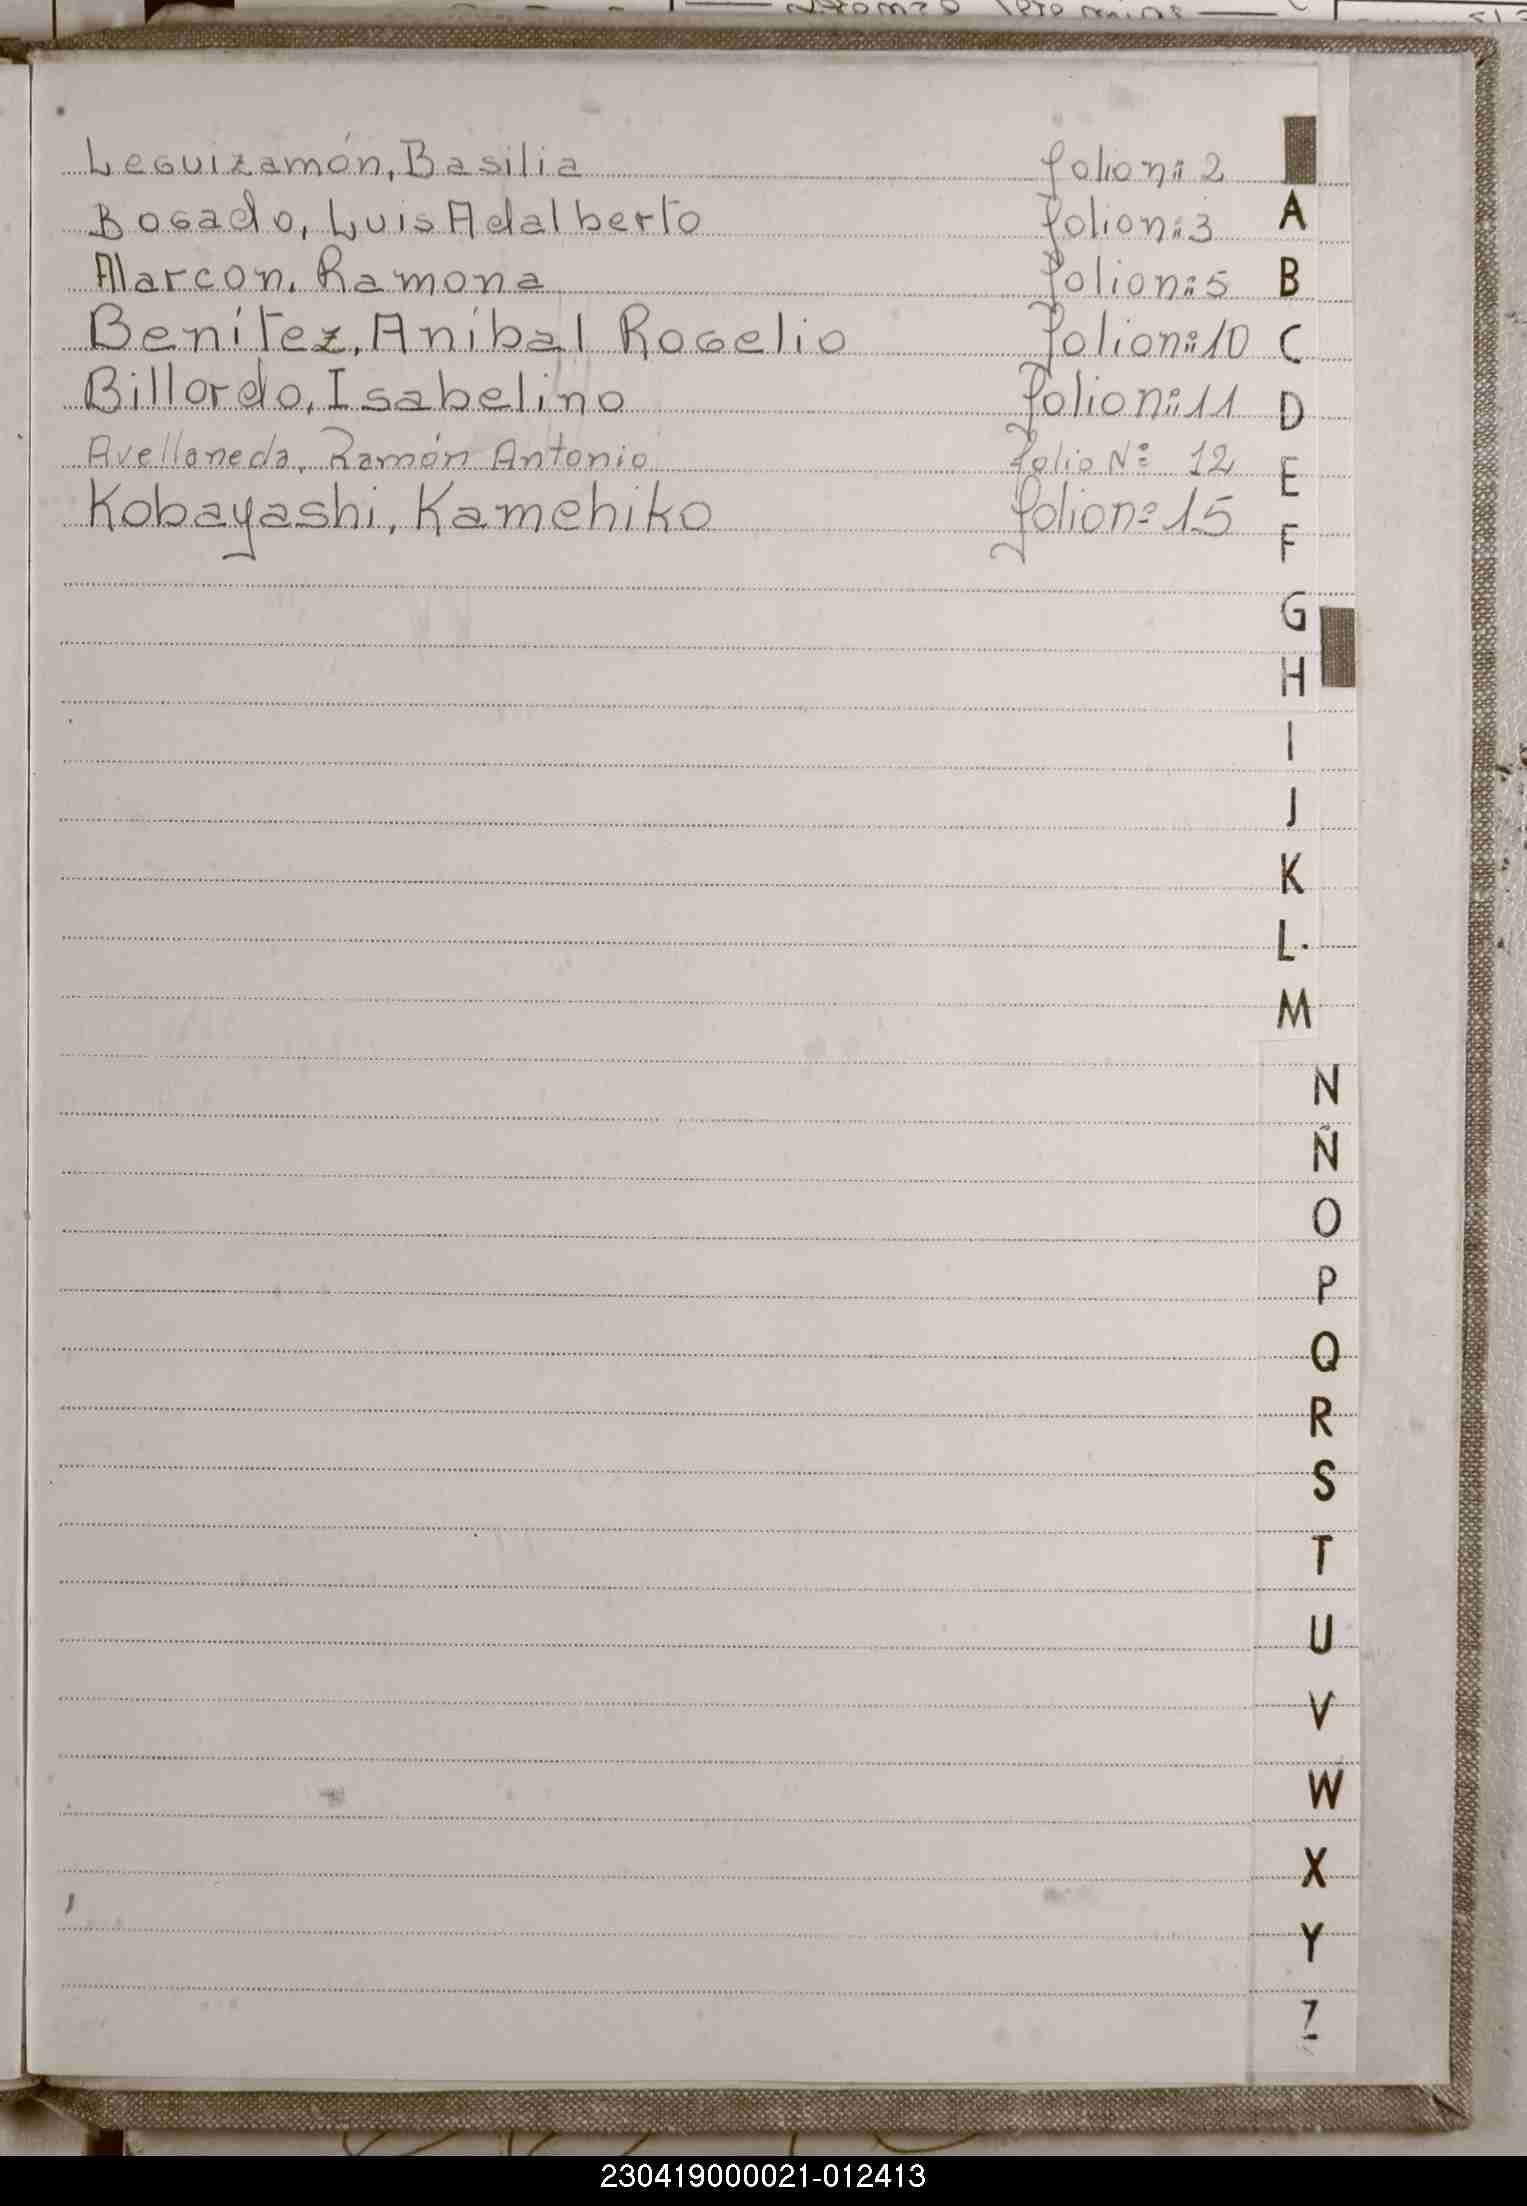 Leguizamón, Basilia folio nº 2
Bogado, Luis Adalberto folio nº 3
Alarcon, Ramona folio nº 5
Benítez, Aníbal Rogelio folio nº 10
Billordo, Isabelino folio nº 11
Avellaneda, Ramón Antonio folio Nº 12
Kobayashi, Kamehiko folio nº 15
A
B
C
D
E
F
G
H
I
J
K
L
M
N
Ñ
O
P
Q
R
S
T
U
V
W
X
Y
Z
230419000021-012413